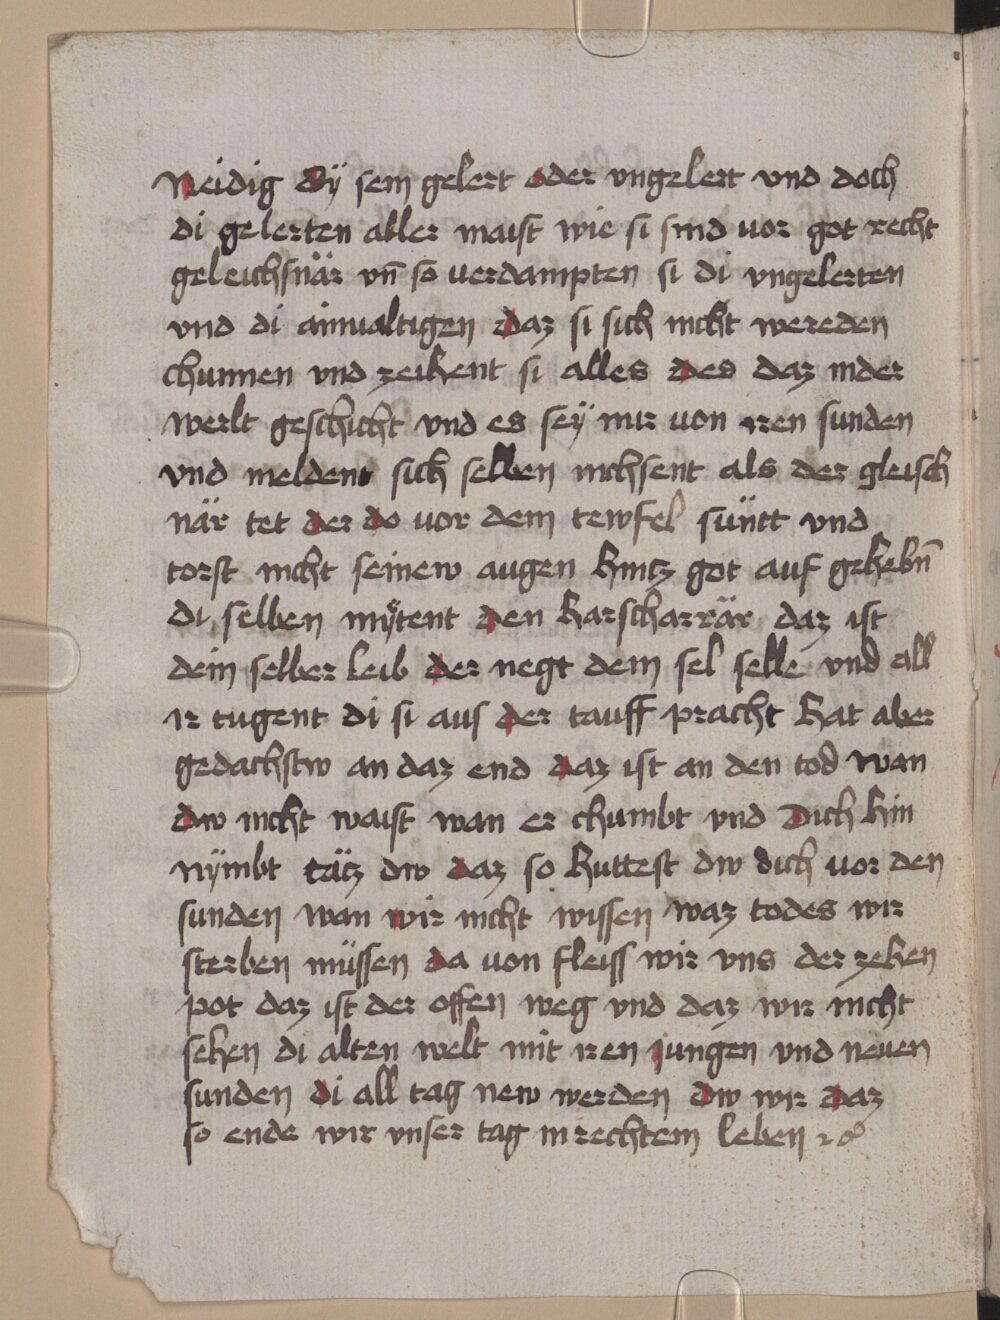 Neidig Sÿ sein gelert oder vngelert vnd doch
di gelerten aller maist wie si sind vor got recht
geleichsnär vn̄ so verdampten si di vngelerten
vnd di ainualtigen daz si sich nicht wereden
chunnen vnd zeihent si alles des daz inder
werlt geschicht vnd es seÿ nur von iren sunden
vnd meldent sich selben nichsent als der gleisch
när tet der do vor dem tewfel süntt vnd
torst nicht seinew augen hintz got auf gehebn̄
di selben mÿtent den harscharrär daz ist
dein selber leib der negt dem sel selle vnd all
ir tugent di si aus der tauff pracht hat aber
gedachstw an daz end daz ist an den tod wan
dw nicht waist wan er chumbt vnd Dich hin
nÿmbt tätz dw daz so huttest dw dich vor den
sunden wan wir nicht wissen waz todes wir
sterben müssen da von fleiss wir vns der zehen
pot daz ist der offen weg vnd daz wir nicht
sehen di alten welt mit iren jungen vnd neuen
sunden di all tag new werden dw wir daz
so ende wir vnser tag in rechtem leben